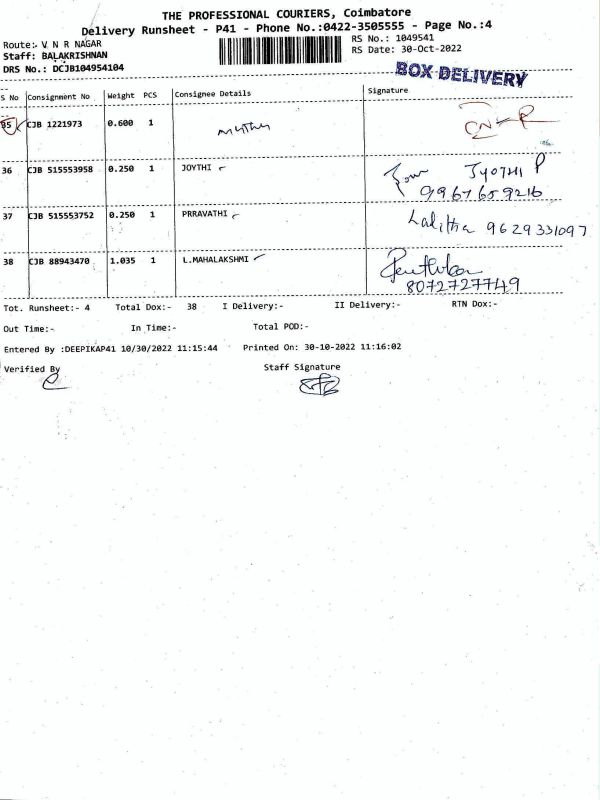 THE PROFESSIONAL COURIERS, Coimbatore
Delivery Runsheet - P41 - Phone No.:0422-3505555 - Page No.:4
Route:- V N R NAGAR
RS No.: 1049541
Staff: BALAKRISHNAN
RS Date: 30-Oct-2022
DRS No.: DCJB104954104
BOX DELIVERY
S No Consignment No Weight PCS Consignee Details Signature
35 CJB 1221973 0.600 1
36 CJB 515553958 0.250 1 JOYTHI JYOTHI P
9967659216
37 CJB 515553752 0.250 1 PRRAVATHI Lalitha 9629331097
38 CJB 88943470 1.035 1 L.MAHALAKSHMI
8072727749
Tot. Runsheet:- 4 Total Dox:- 38 I Delivery:- II Delivery:- RTN Dox:-
Out Time:- In Time:- Total POD:-
Entered By :DEEPIKAP41 10/30/2022 11:15:44 Printed On: 30-10-2022 11:16:02
Verified By Staff Signature